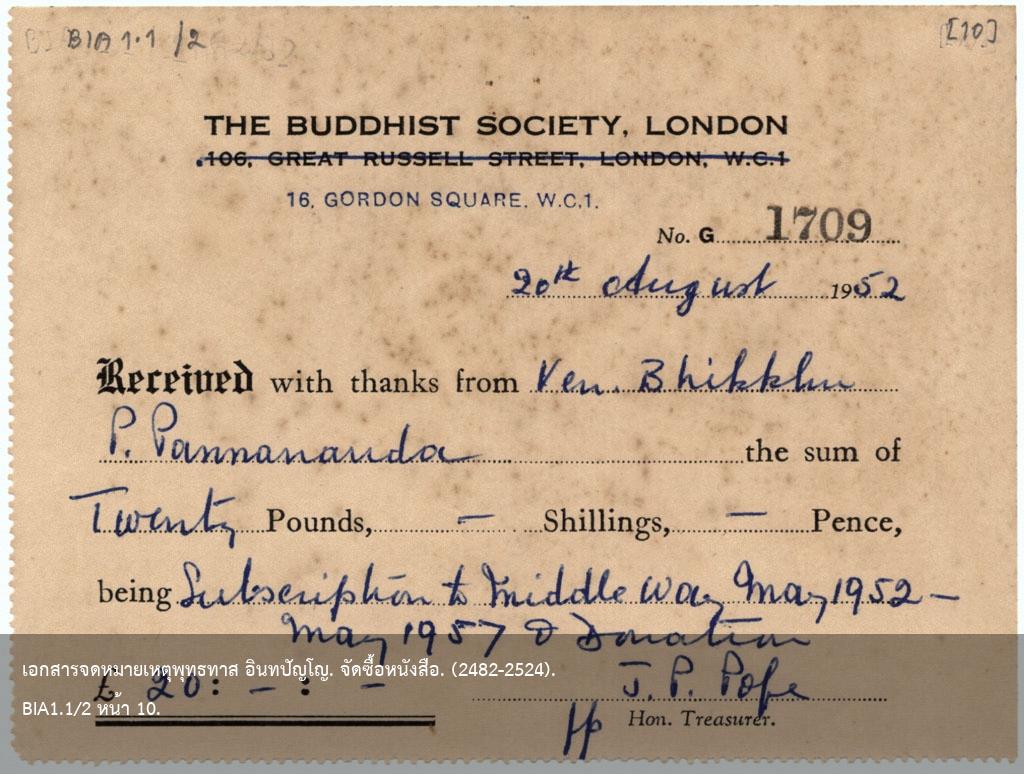 BIA 1.1 /2
[10]
THE BUDDHIST SOCIETY, LONDON
106, GREAT RUSSELL STREET, LONDON, W.C.1
16, GORDON SQUARE, W.C.1.
No. G 1709
20th August 1952
Received with thanks from Ven. Bhikkhu
P. Pannananda the sum of
Twenty Pounds, — Shillings, — Pence,
being Subscription to Middle Way May 1952 —
May 1957 & Donation
เอกสารจดหมายเหตุพุทธทาส อินทปัญโญ. จัดซื้อหนังสือ. (2482-2524).
£ 20 : — : — J. P. Pope
BIA1.1/2 หน้า 10.
pp Hon. Treasurer.